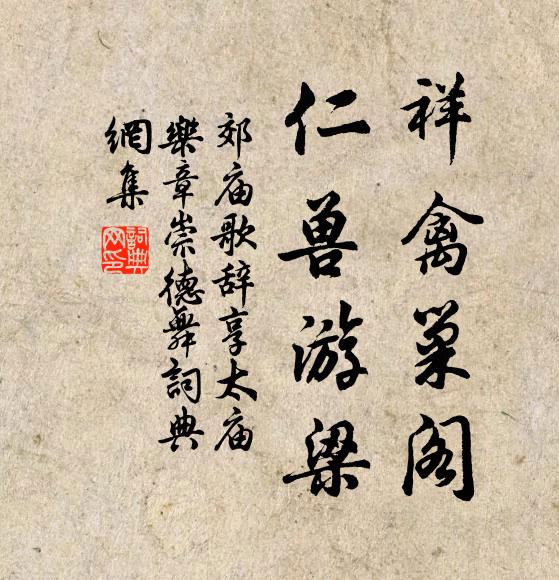 祥禽巢阁
仁兽游梁
郊庙歌辞享太庙
樂章崇德舞詞典
網集
詞典
网印